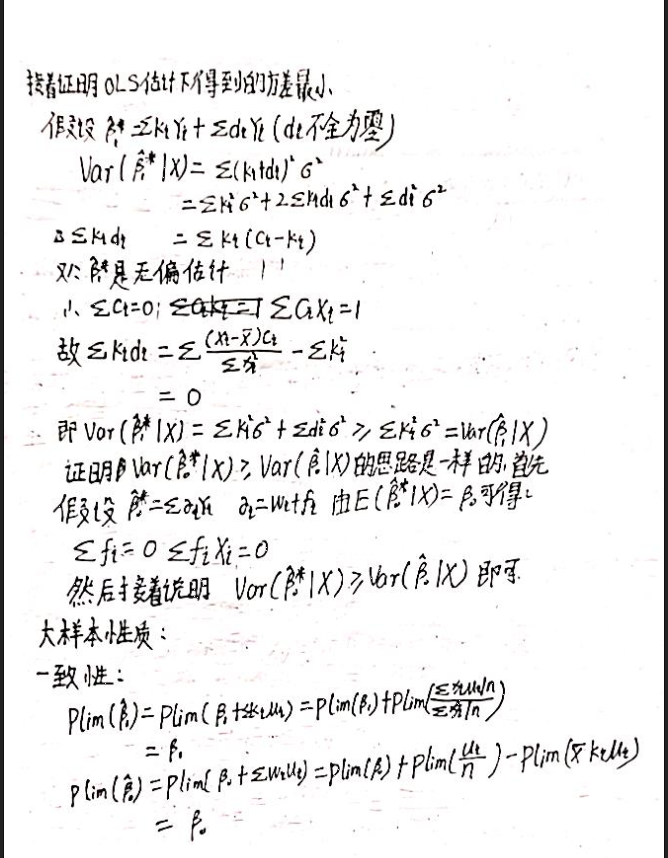 接着证明OLS估计下得到的方差最小、
假设 β̂₁* = ΣkᵢYᵢ + ΣdᵢYᵢ (dᵢ不全为零)
Var(β̂₁*|X) = Σ(kᵢ+dᵢ)²σ²
= Σkᵢ²σ² + 2Σkᵢdᵢσ² + Σdᵢ²σ²
且 Σkᵢdᵢ = Σkᵢ(Cᵢ-kᵢ)
又∵ β̂₁*是无偏估计
∴ ΣCᵢ=0; ΣCᵢXᵢ=1
故 Σkᵢdᵢ = Σ(Xᵢ-X̄)Cᵢ/Σxᵢ² - Σkᵢ²
= 0
即 Var(β̂₁*|X) = Σkᵢ²σ² + Σdᵢ²σ² ≥ Σkᵢ²σ² = Var(β̂₁|X)
证明 Var(β̂₀*|X) ≥ Var(β̂₀|X)的思路是一样的,首先
假设 β̂₀*=Σ∂ᵢYᵢ ∂ᵢ=wᵢ+fᵢ 由E(β̂₀*|X)=β₀可得:
Σfᵢ=0 ΣfᵢXᵢ=0
然后接着说明 Var(β̂₀*|X) ≥ Var(β̂₀|X) 即可
大样本性质:
一致性:
Plim(β̂₁) = Plim(β₁+Σkᵢμᵢ) = Plim(β₁) + Plim((Σxᵢμᵢ/n)/(Σxᵢ²/n))
= β₁
Plim(β̂₀) = Plim(β₀+Σwᵢμᵢ) = Plim(β₀) + Plim(μᵢ/n) - Plim(X̄kᵢμᵢ)
= β₀